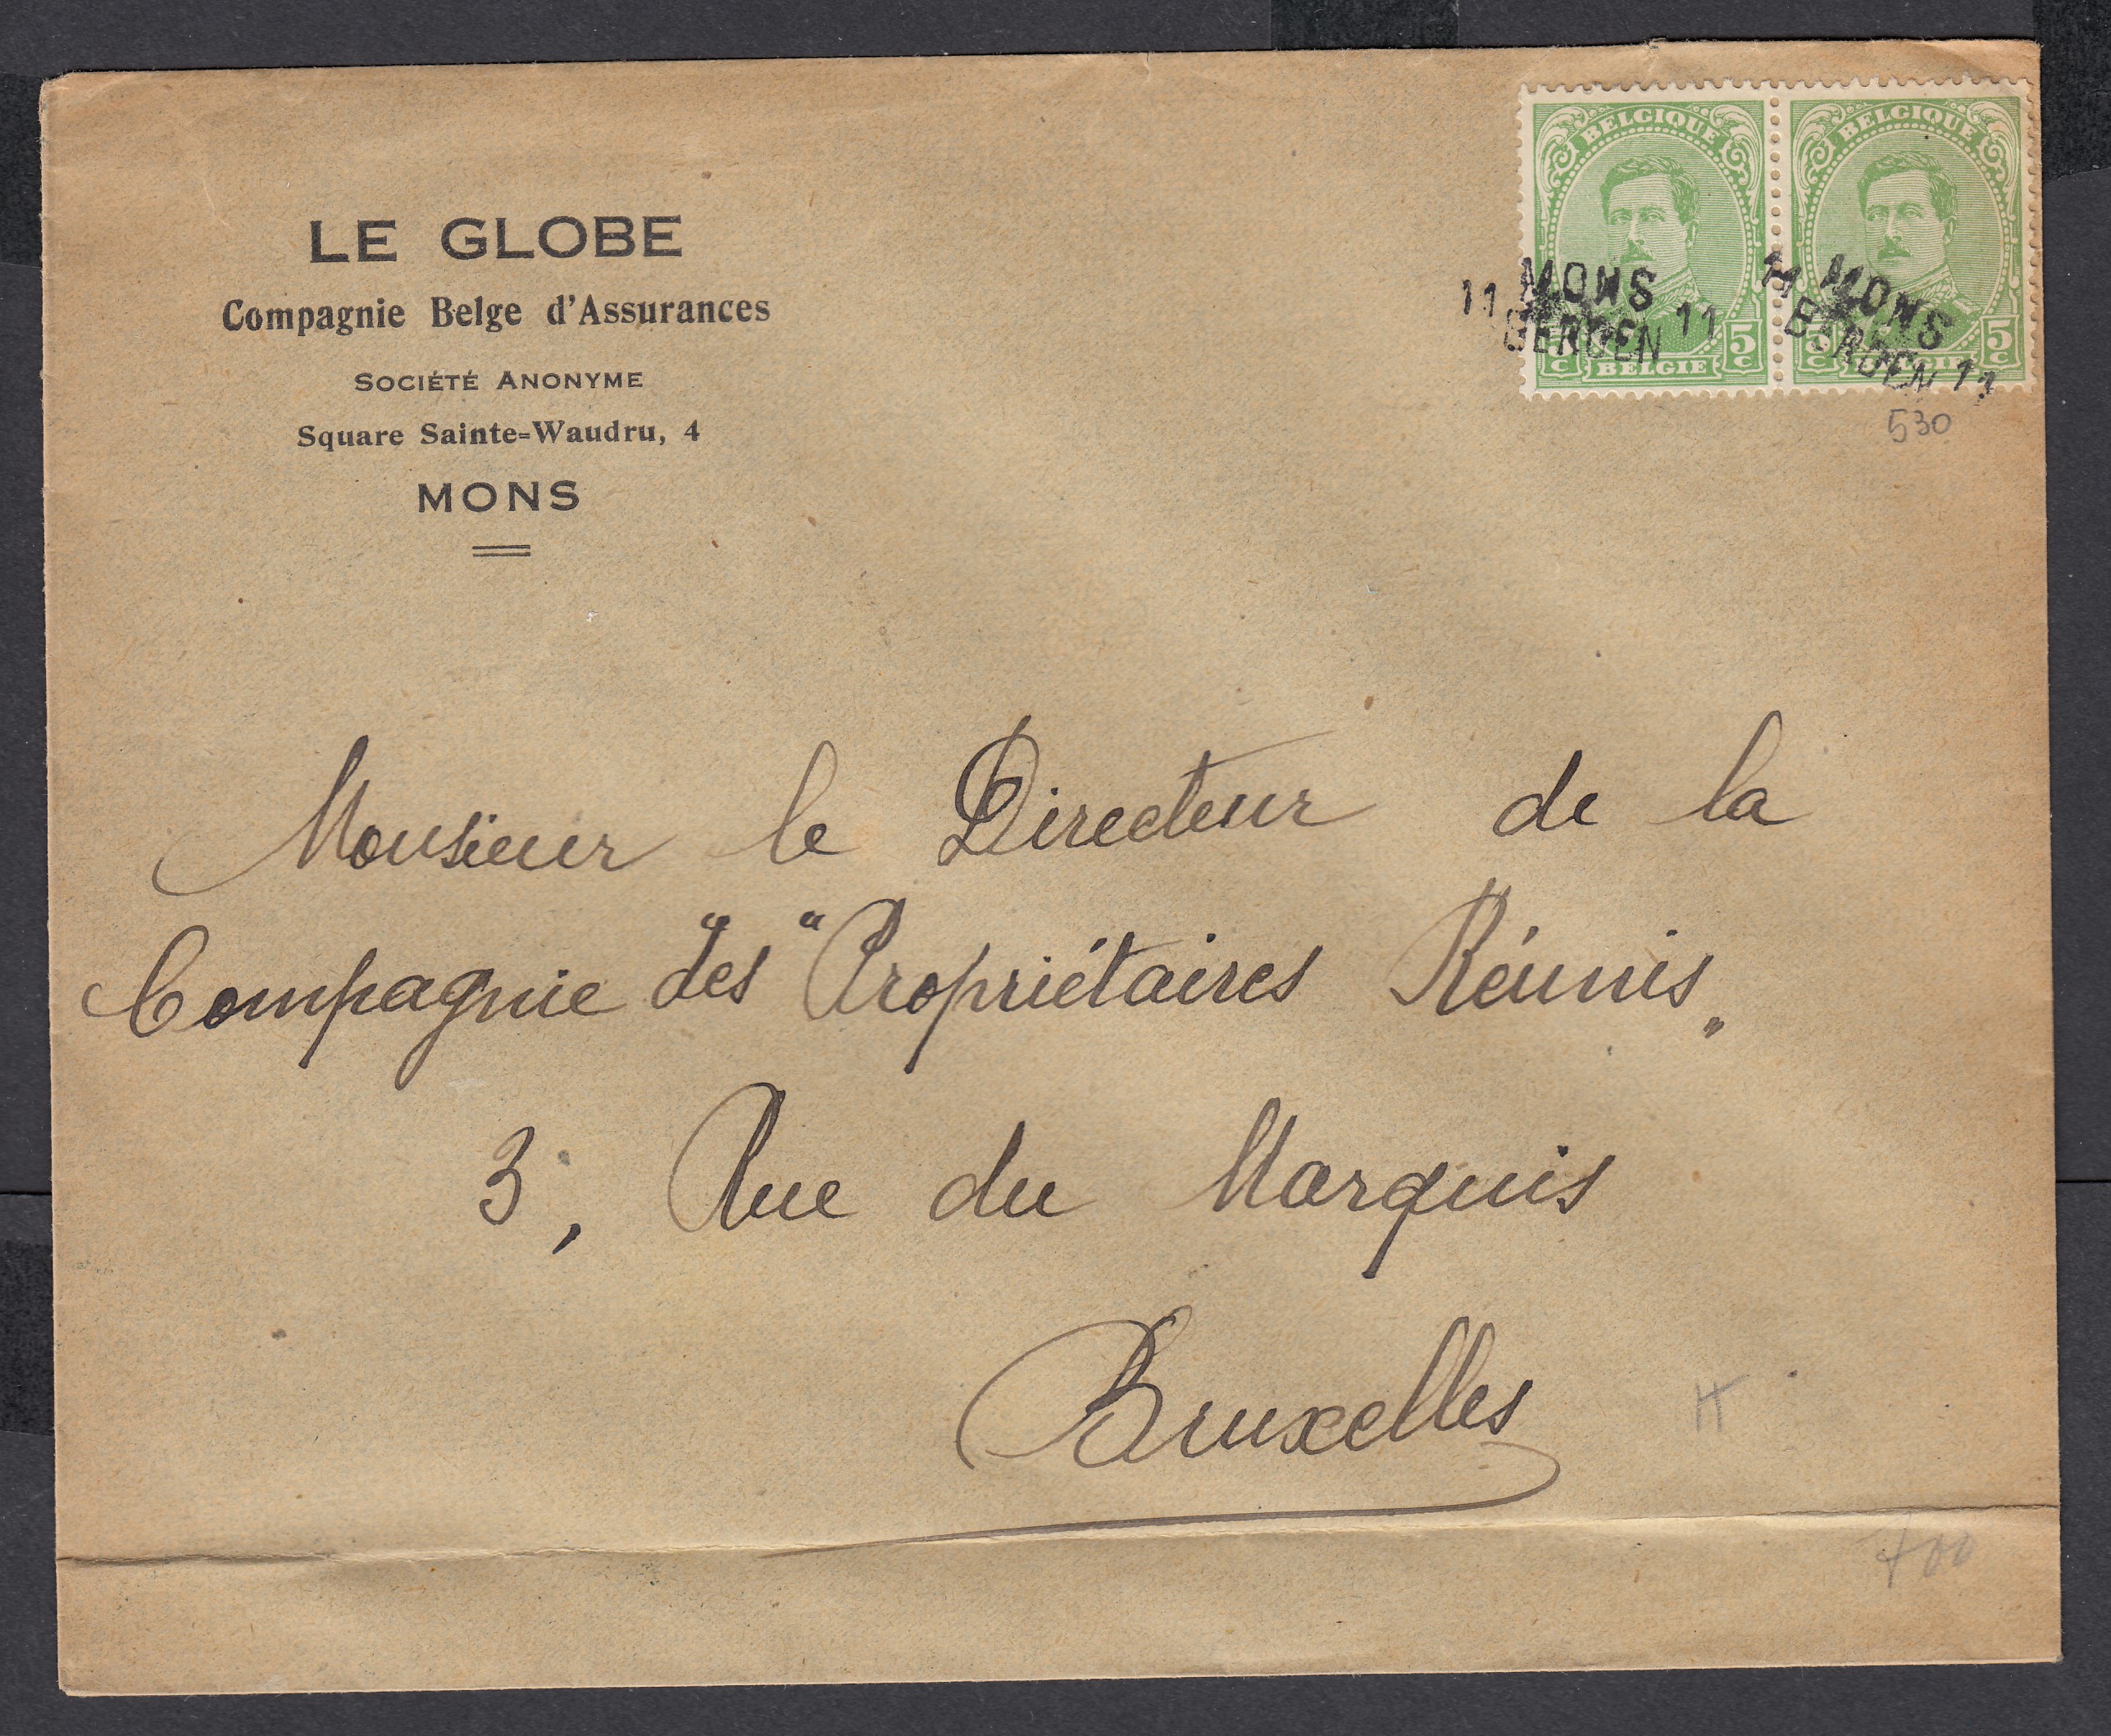 LE GLOBE
Compagnie Belge d'Assurances
SOCIÉTÉ ANONYME
Square Sainte=Waudru, 4
MONS
BELGIQUE BELGIQUE
11 MONS 11 MONS
BERGEN 11 BERGEN 11
5c BELGIE 5c 5c BELGIE 5c
530
Monsieur le Directeur de la
Compagnie des "Propriétaires Réunis„
3, Rue du Marquis
Bruxelles